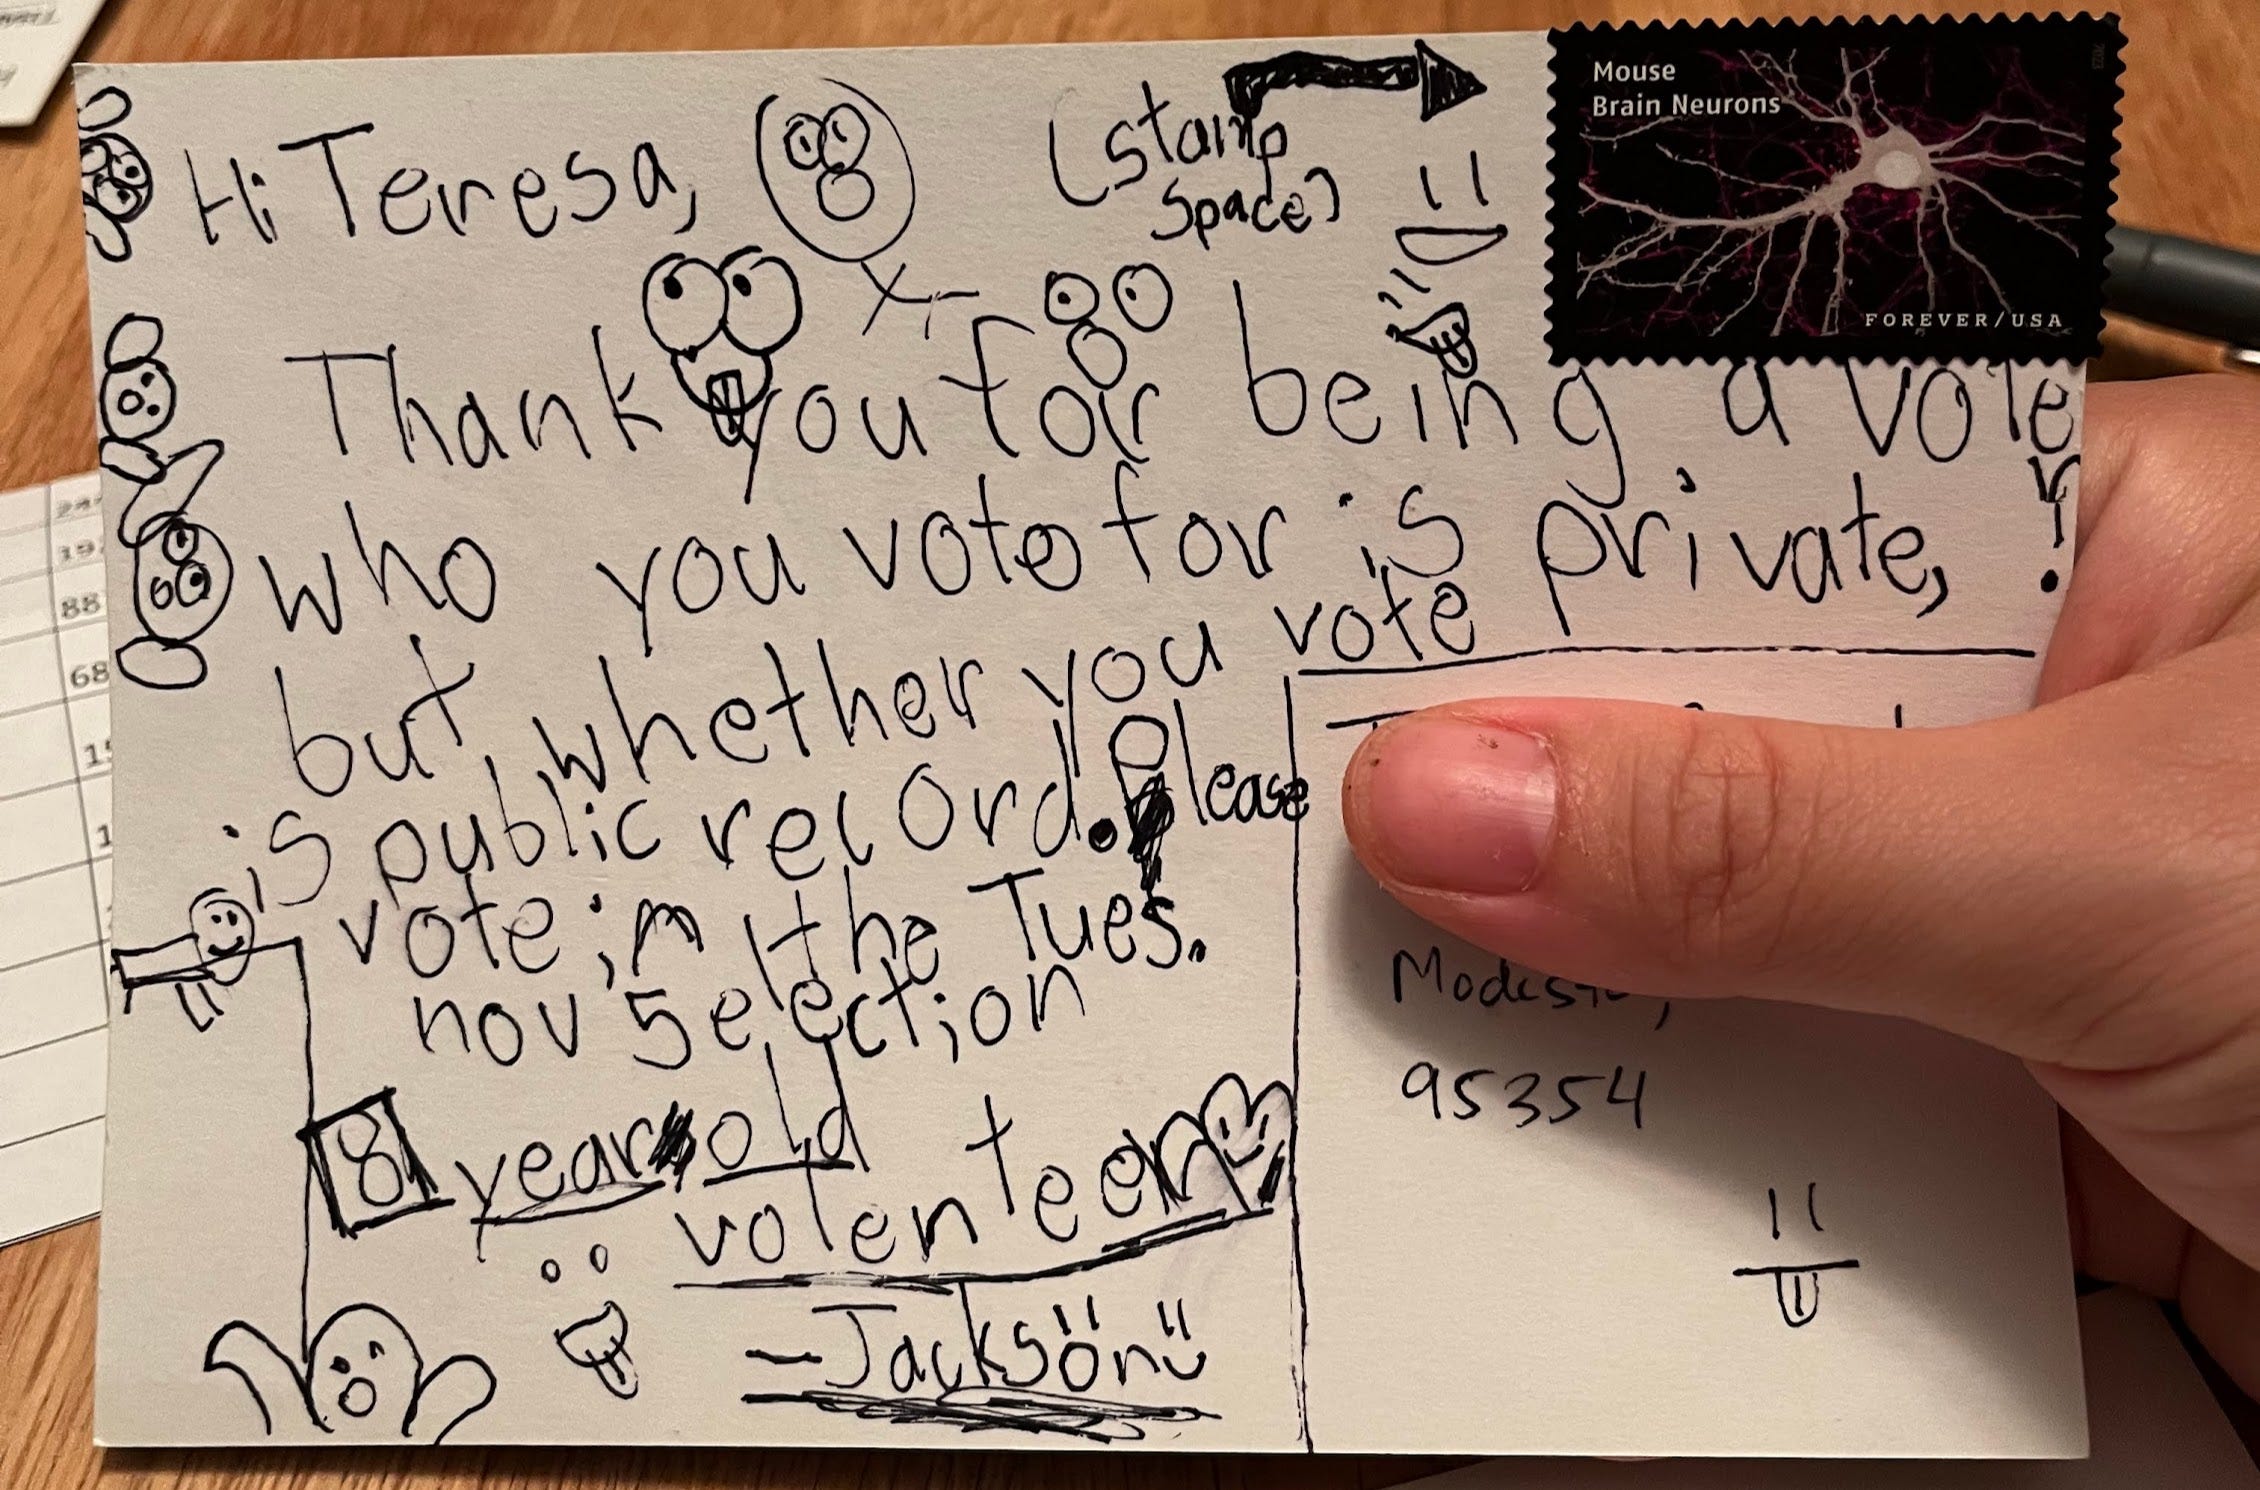 Hi Teresa,
(stamp
space)
Mouse
Brain Neurons
2023
FOREVER/USA
Thank you for being a voter!
who you vote for is private,
but, whether you vote
is public record. please
vote in the Tues.
nov 5 election
8 year old
volenteer
-Jackson
Modesto,
95354
88
68